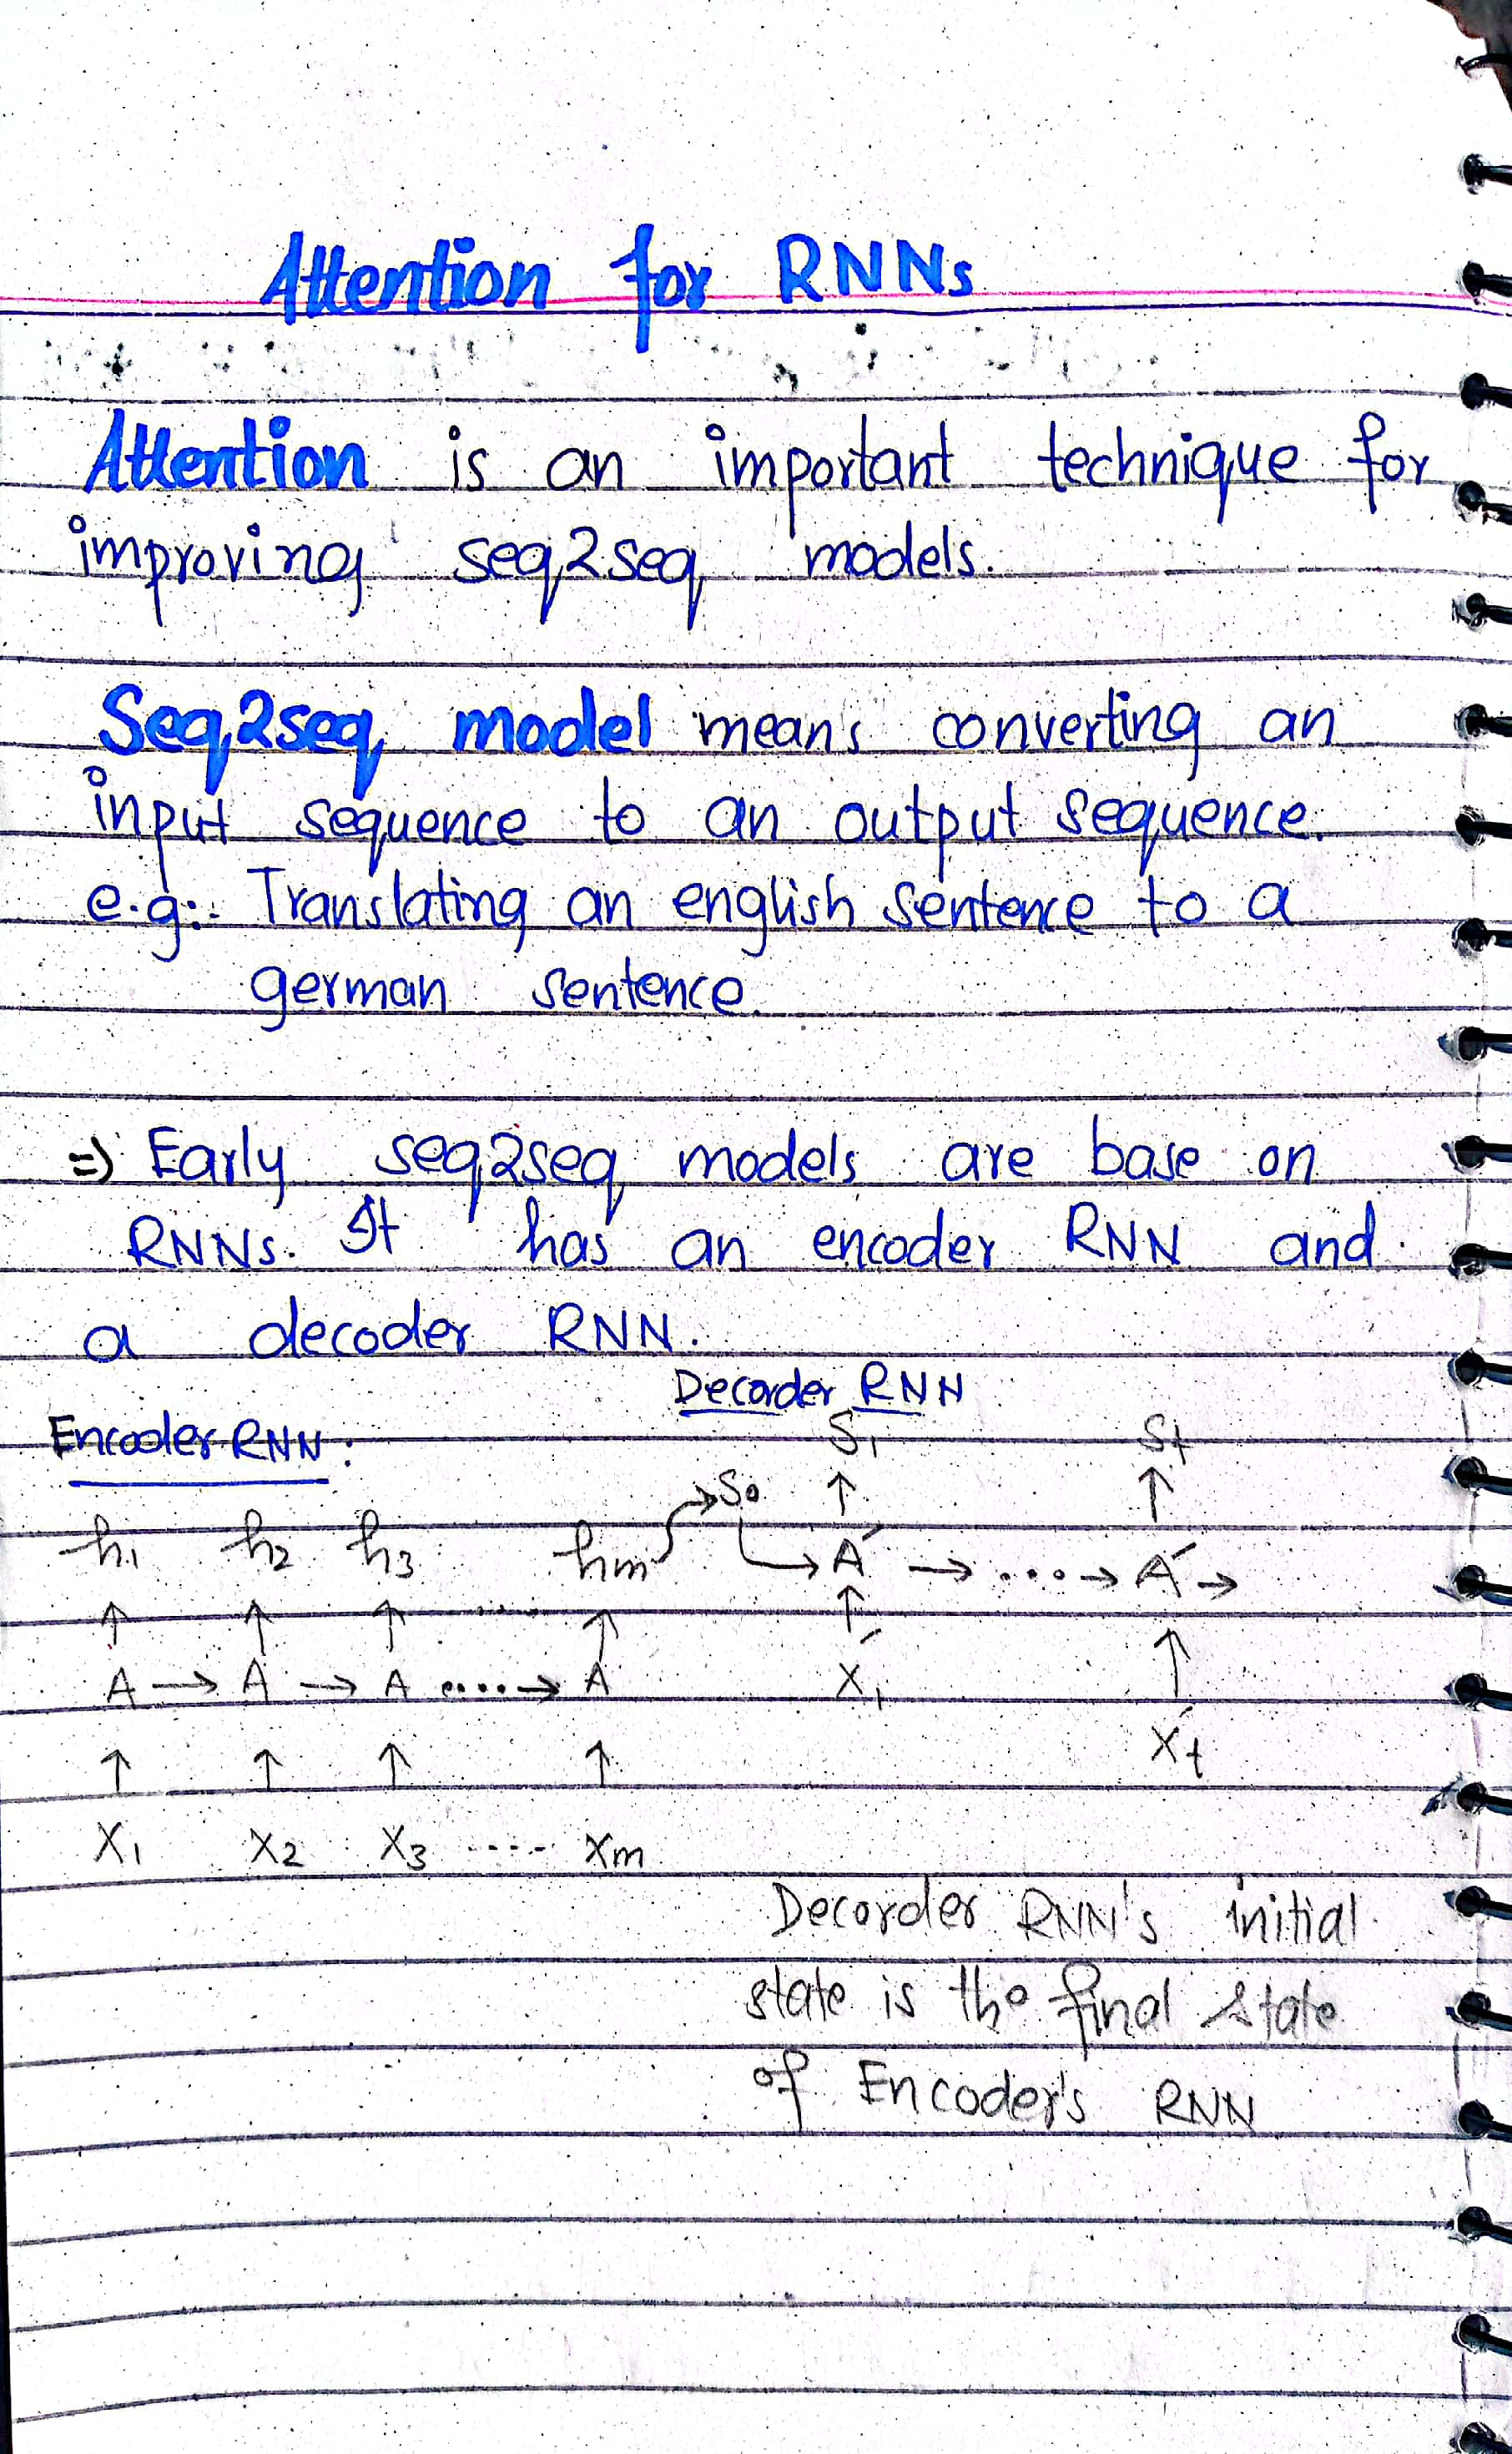 Attention for RNNs
Attention is an important technique for
improving seq2seq models.
Seq2seq model means converting an
input sequence to an output sequence.
e.g:- Translating an english sentence to a
german sentence.
=) Early seq2seq models are base on
RNNs. It has an encoder RNN and
a decoder RNN.
Decorder RNN
Encoder RNN:
S1 St
h1 h2 h3 hm → S0 → A' → ....→ A' →
A → A → A ....→ A
X'1 X't
X1 X2 X3 ..... Xm
Decorder RNN's initial
state is the final state
of Encoder's RNN